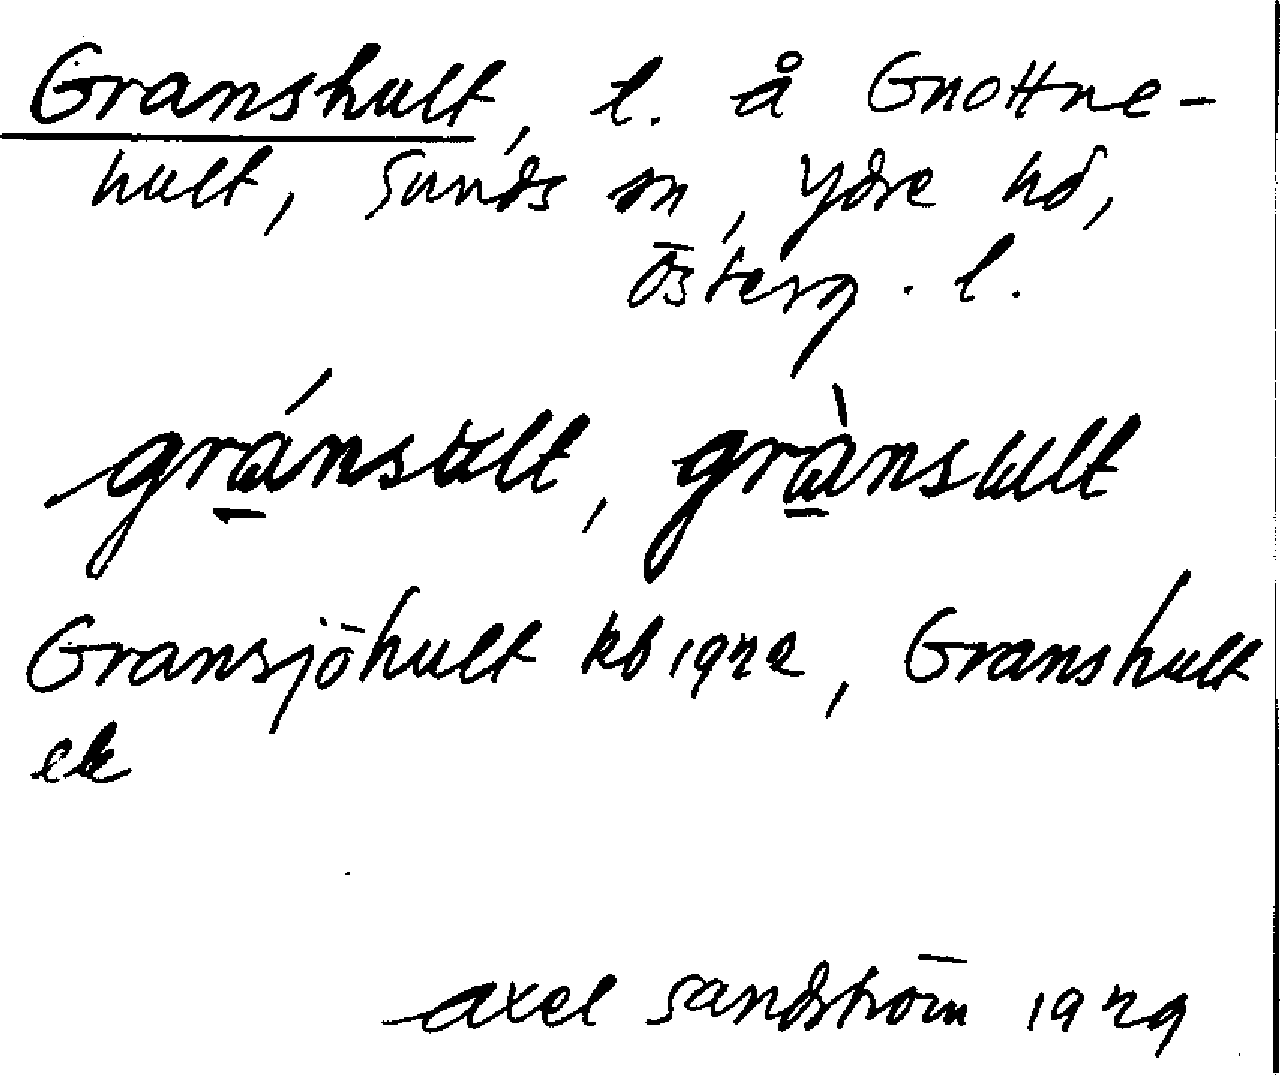 Granshult, l. å Gnottne-
hult, Sunds sn, Ydre hd,
Österg. l.
gránsult, grànsult
Gransjöhult kb 1922, Granshult
ek
Axel Sandström 1929